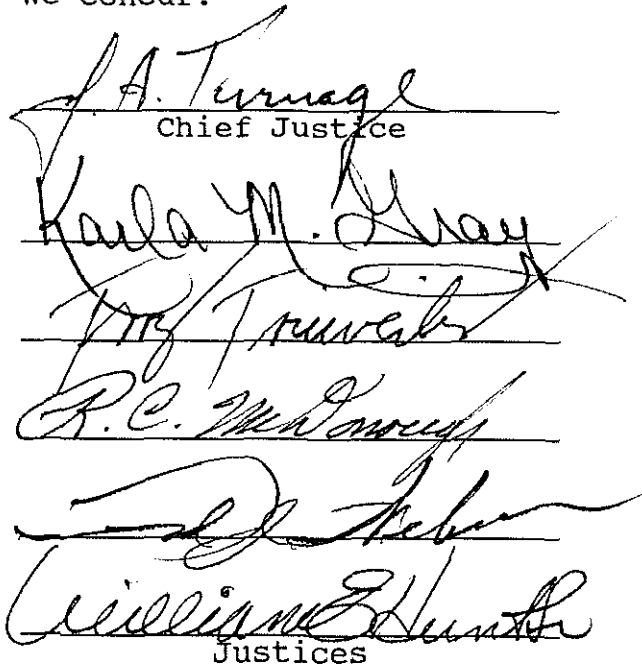 We concur:
J. A. Turnage
Chief Justice
Karla M. Gray
Terry Trieweiler
R. C. McDonough
William E Hunt Sr
Justices